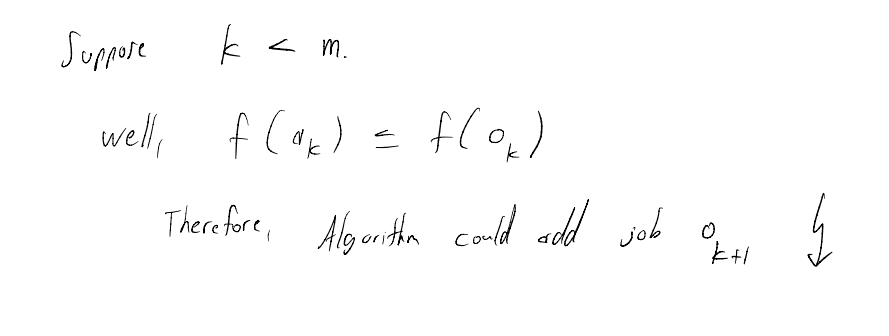 Suppose k < m.
well, f(a_k) ≤ f(o_k)
Therefore, Algorithm could add job o_{k+1} ↯